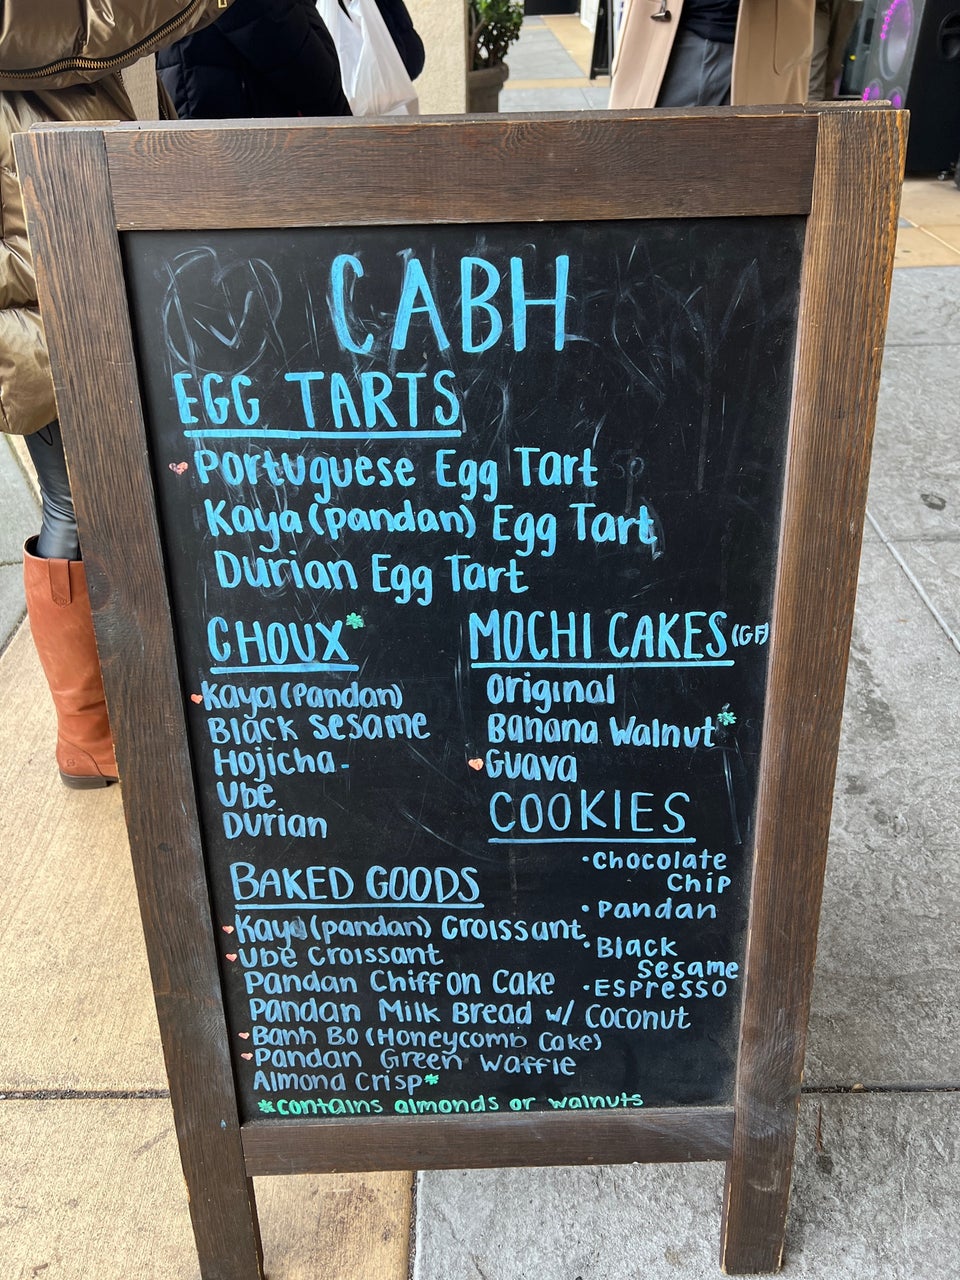 CABH
EGG TARTS
Portuguese Egg Tart
Kaya (pandan) Egg Tart
Durian Egg Tart
CHOUX*
Kaya (Pandan)
Black sesame
Hojicha
Ube
Durian
MOCHI CAKES (GF)
Original
Banana Walnut*
Guava
COOKIES
•Chocolate
Chip
•Pandan
•Black
Sesame
•Espresso
BAKED GOODS
Kaya (pandan) Croissant
Ube Croissant
Pandan Chiffon Cake
Pandan Milk Bread w/ Coconut
Banh Bo (Honeycomb Cake)
Pandan Green Waffle
Almond Crisp*
*contains almonds or walnuts